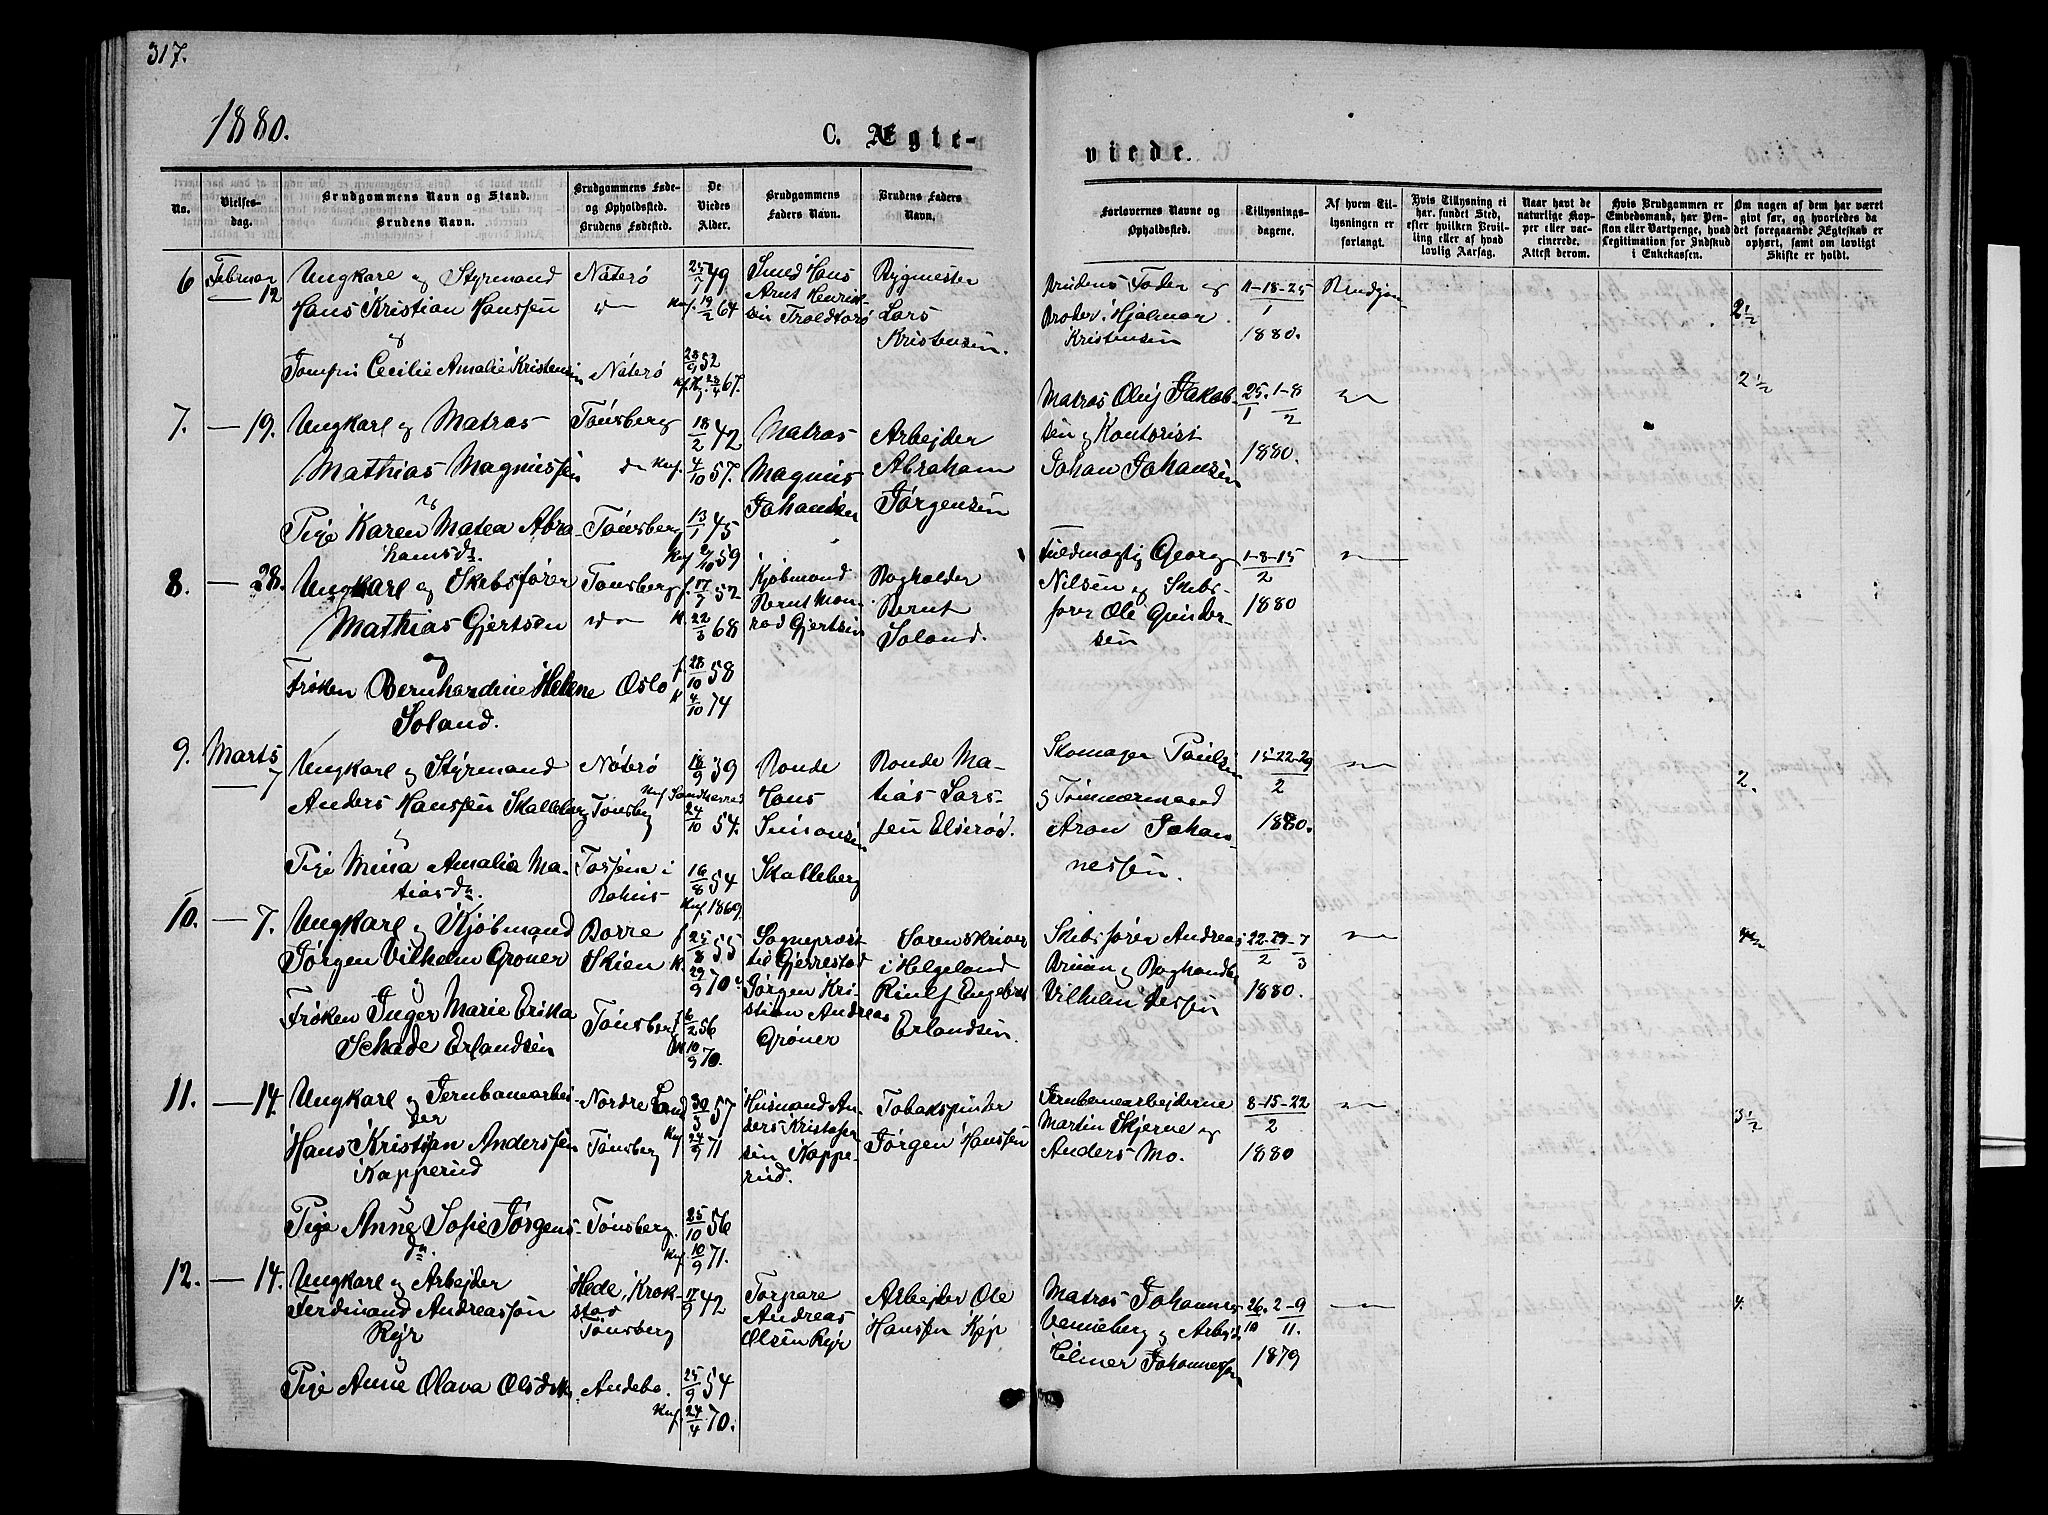 317.
1880.
C. Ægte-
viede.
No.
Vielses-
dag.
Brudgommens Navn og Stand.
Brudens Navn.
Brudgommens Føde-
og Opholdssted.
Brudens Fødested.
De
Viedes
Alder.
Brudgommens
Faders Navn.
Brudens Faders
Navn.
Forlovernes Navne og
Opholdssted.
Tillysnings-
dagene.
Af hvem Til-
lysningen er
forlangt.
Hvis Tillysning ei
har fundet Sted,
efter hvilken Bevil-
ling eller af hvad
lovlig Aarsag.
Naar havt de
naturlige Kop-
per eller vac-
cinerede.
Attest derom.
Hvis Brudgommen er
Embedsmand, har Pen-
sion eller Vartpenge, hvad
Legitimation for Indskud
i Enkekassen.
Om nogen af dem har været
givt før, og hvorledes da
det foregaaende Ægteskab er
ophørt, samt om lovligt
Skifte er holdt.
6 Februar
— 12
Ungkarl og Styrmand
Hans Kristian Hanssen
og
Cecilie Amalie Kristensen
Nøterø
Nøterø
25/1 49
Knf. 19/2 64
28/9 52
67.
Smed Hans
Arnt Henrik-
sen
Rygmester
Lars
Kristensen.
Brudens Fader og
Broder Hjalmar
Kristensen
11-18-25
1
1880.
2 1/2
7. — 19.
Ungkarl og Matros
Mathias Magnussen
og
Pige Karen Matea Abra-
hamsdr.
Tønsberg
do
Tønsberg
18/2 42
Knf. 4/10 57.
13/1 45
Knf 2/10 59
Matros
Magnus
Johansen
Arbejder
Abraham
Jørgensen
Matros Oluf Jakob-
sen og Kontorist
Johan Johansen
25. 1-8
1 2
1880.
2 1/2
8. — 28.
Ungkarl og Skibsfører
Mathias Gjertsen
og
Frøken Bernhardine Helene
Soland.
Tønsberg
Oslo
f. 17/7 52
K. 22/3 68
f. 28/10 58
K. 4/10 74
Kjøbmand
Bernt Mon-
rad Gjertsen
Bogholder
Bernt
Soland.
Fuldmægtig Georg
Nilsen og Skibs-
fører Ole Gunder-
sen
1-8-15
2
1880
9. Marts
— 7
Ungkarl og Styrmand
Anders Hanssen Skalleberg
og
Pige Mina Amalia Ma-
tiasdr.
Nøterø
Tønsberg
Torsene i
Bohus
18/9 39
Knf Sandherred
24/10 54.
16/8 54
Knf 1869.
Bonde
Hans
Simonsen
Skalleberg
Bonde Ma-
tias Lars-
sen Elserød.
Skomager Paulsen
og Tømmermand
Aron Johan-
nessen.
15-22-29
2
1880.
2.
10. — 7.
Ungkarl og Kjøbmand
Jørgen Vilhelm Grøner
og
Frøken Inger Marie Erika
Schade Erlandsen
Borre
Skien
Tønsberg
f. 25/8 55
K. 29/9 70.
f. 6/2 56
K 10/9 70.
Sogneprest
til Gjerrestad
Jørgen Kri-
stian Andreas
Grøner
Sorenskriver
i Helgeland
Rinlf Engebret
Erlandsen.
Skibsfører Andreas
Bruun og Boghandler
Vilhelm
22-29-7
2 3
1880.
11. — 14.
Ungkarl og Jernbanearbei-
der
Hans Kristian Anderssen
Kapperud
og
Pige Anne Sofie Jørgens-
dr.
Nordre Land
Tønsberg
Tønsberg.
30/3 57
Knf 24/9 71
25/10 56
Knf. 10/9 71.
Husmand An-
ders Kristofer-
sen Kappe-
rud.
Tobakspinder
Jørgen Hanssen
Jernbanearbejderne
Martin Skjerne og
Anders Mo.
8-15-22
2
1880
3 1/2
12. — 14.
Ungkarl og Arbejder
Ferdinand Andreassøn
Ryr
og
Pige Anne Olava Olsdtr.
Hede, Krok-
stad
Tønsberg
Andebo.
17/9 42
25/9 54
Knf. 24/4 70.
Torpare
Andreas
Olsen Ryr
Arbejder Ole
Hanssen
Matros Johannes
Venneberg og Arbejd.
Hilmer Johannessen
26. 2-9
10 11.
1879
4.